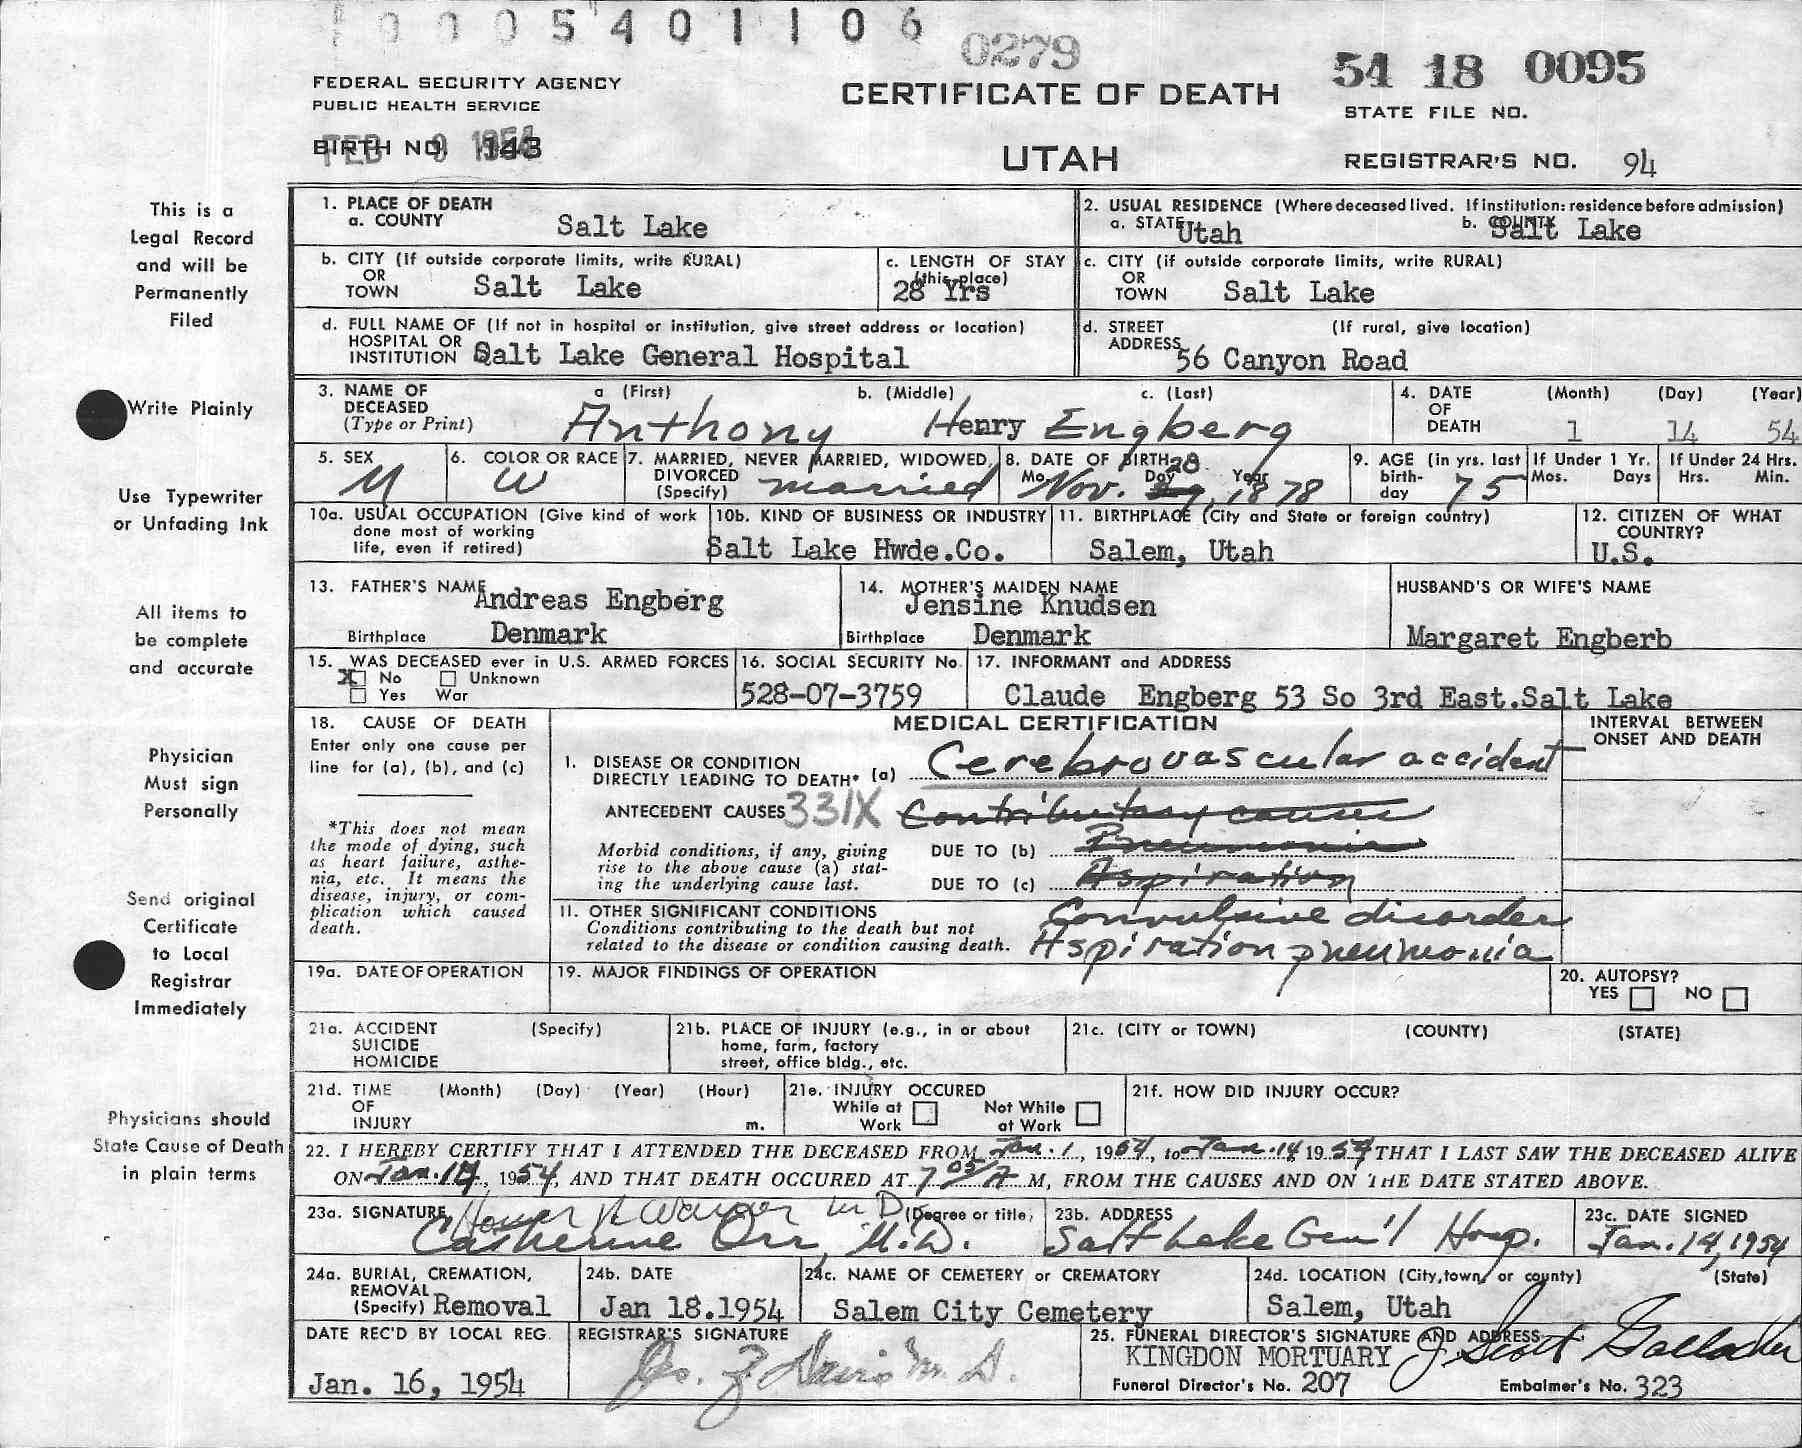 0005401106
0279
54 18 0095
FEDERAL SECURITY AGENCY
PUBLIC HEALTH SERVICE
CERTIFICATE OF DEATH
STATE FILE NO.
BIRTH NO. 143
FEB 9 1954
UTAH
REGISTRAR'S NO. 94
This is a
Legal Record
and will be
Permanently
Filed
Write Plainly
Use Typewriter
or Unfading Ink
All items to
be complete
and accurate
Physician
Must sign
Personally
Send original
Certificate
to Local
Registrar
Immediately
Physicians should
State Cause of Death
in plain terms
1. PLACE OF DEATH
a. COUNTY Salt Lake
2. USUAL RESIDENCE (Where deceased lived. If institution: residence before admission)
a. STATE Utah b. COUNTY Salt Lake
b. CITY (If outside corporate limits, write RURAL)
OR
TOWN Salt Lake
c. LENGTH OF STAY
(this place)
28 Yrs
c. CITY (if outside corporate limits, write RURAL)
OR
TOWN Salt Lake
d. FULL NAME OF (If not in hospital or institution, give street address or location)
HOSPITAL OR
INSTITUTION Salt Lake General Hospital
d. STREET (If rural, give location)
ADDRESS 56 Canyon Road
3. NAME OF a (First) b. (Middle) c. (Last)
DECEASED
(Type or Print) Anthony Henry Engberg
4. DATE (Month) (Day) (Year)
OF
DEATH 1 14 54
5. SEX
M
6. COLOR OR RACE
W
7. MARRIED, NEVER MARRIED, WIDOWED,
DIVORCED
(Specify) married
8. DATE OF BIRTH
Mo. Day Year
Nov. 28, 1878
9. AGE (in yrs. last
birth-
day 75
If Under 1 Yr.
Mos. Days
If Under 24 Hrs.
Hrs. Min.
10a. USUAL OCCUPATION (Give kind of work
done most of working
life, even if retired)
10b. KIND OF BUSINESS OR INDUSTRY
Salt Lake Hwde.Co.
11. BIRTHPLACE (City and State or foreign country)
Salem, Utah
12. CITIZEN OF WHAT
COUNTRY?
U.S.
13. FATHER'S NAME Andreas Engberg
Birthplace Denmark
14. MOTHER'S MAIDEN NAME
Jensine Knudsen
Birthplace Denmark
HUSBAND'S OR WIFE'S NAME
Margaret Engberb
15. WAS DECEASED ever in U.S. ARMED FORCES
X No Unknown
Yes War
16. SOCIAL SECURITY No.
528-07-3759
17. INFORMANT and ADDRESS
Claude Engberg 53 So 3rd East.Salt Lake
18. CAUSE OF DEATH
Enter only one cause per
line for (a), (b), and (c)
*This does not mean
the mode of dying, such
as heart failure, asthe-
nia, etc. It means the
disease, injury, or com-
plication which caused
death.
MEDICAL CERTIFICATION
INTERVAL BETWEEN
ONSET AND DEATH
1. DISEASE OR CONDITION
DIRECTLY LEADING TO DEATH* (a) Cerebrovascular accident
ANTECEDENT CAUSES 331X Contributary causes
Morbid conditions, if any, giving
rise to the above cause (a) stat-
ing the underlying cause last.
DUE TO (b) Pneumonia
DUE TO (c) Aspiration
11. OTHER SIGNIFICANT CONDITIONS
Conditions contributing to the death but not
related to the disease or condition causing death.
Convulsive disorder
Aspiration pneumonia
19a. DATE OF OPERATION
19. MAJOR FINDINGS OF OPERATION
20. AUTOPSY?
YES NO
21a. ACCIDENT (Specify)
SUICIDE
HOMICIDE
21b. PLACE OF INJURY (e.g., in or about
home, farm, factory
street, office bldg., etc.
21c. (CITY or TOWN) (COUNTY) (STATE)
21d. TIME (Month) (Day) (Year) (Hour)
OF
INJURY m.
21e. INJURY OCCURED
While at Work
Not While at Work
21f. HOW DID INJURY OCCUR?
22. I HEREBY CERTIFY THAT I ATTENDED THE DECEASED FROM Jan. 1, 1954, to Jan. 14 1954 THAT I LAST SAW THE DECEASED ALIVE
ON Jan. 14, 1954, AND THAT DEATH OCCURED AT 7 05/A M, FROM THE CAUSES AND ON THE DATE STATED ABOVE.
23a. SIGNATURE Homer R Warner M D (Degree or title)
Catherine Orr, M.D.
23b. ADDRESS
Salt Lake Gen'l Hosp.
23c. DATE SIGNED
Jan. 14, 1954
24a. BURIAL, CREMATION,
REMOVAL
(Specify) Removal
24b. DATE
Jan 18.1954
24c. NAME OF CEMETERY or CREMATORY
Salem City Cemetery
24d. LOCATION (City, town, or county) (State)
Salem, Utah
DATE REC'D BY LOCAL REG.
Jan. 16, 1954
REGISTRAR'S SIGNATURE
Jos. Z Davis M. D.
25. FUNERAL DIRECTOR'S SIGNATURE AND ADDRESS
KINGDON MORTUARY J. Scott Gallacher
Funeral Director's No. 207 Embalmer's No. 323